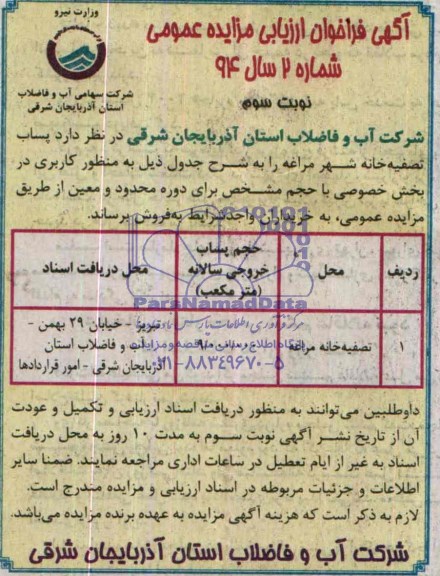 وزارت نیرو
شرکت سهامی آب و فاضلاب
استان آذربایجان شرقی
آگهی فراخوان ارزیابی مزایده عمومی
شماره ۲ سال ۹۴
نوبت سوم
شرکت آب و فاضلاب استان آذربایجان شرقی در نظر دارد پساب
تصفیه‌خانه شهر مراغه را به شرح جدول ذیل به منظور کاربری در
بخش خصوصی با حجم مشخص برای دوره محدود و معین از طریق
مزایده عمومی، به خریداران واجدشرایط به‌فروش برساند.
ردیف
محل
حجم پساب
خروجی سالانه
(متر مکعب)
محل دریافت اسناد
۱
تصفیه‌خانه مراغه
تبریز - خیابان ۲۹ بهمن -
آب و فاضلاب استان
آذربایجان شرقی - امور قراردادها
ParsNamadData
۰۲۱-۸۸۳۴۹۶۷۰-۵
داوطلبین می‌توانند به منظور دریافت اسناد ارزیابی و تکمیل و عودت
آن از تاریخ نشر آگهی نوبت سوم به مدت ۱۰ روز به محل دریافت
اسناد به غیر از ایام تعطیل در ساعات اداری مراجعه نمایند. ضمنا سایر
اطلاعات و جزئیات مربوطه در اسناد ارزیابی و مزایده مندرج است.
لازم به ذکر است که هزینه آگهی مزایده به عهده برنده مزایده می‌باشد.
شرکت آب و فاضلاب استان آذربایجان شرقی